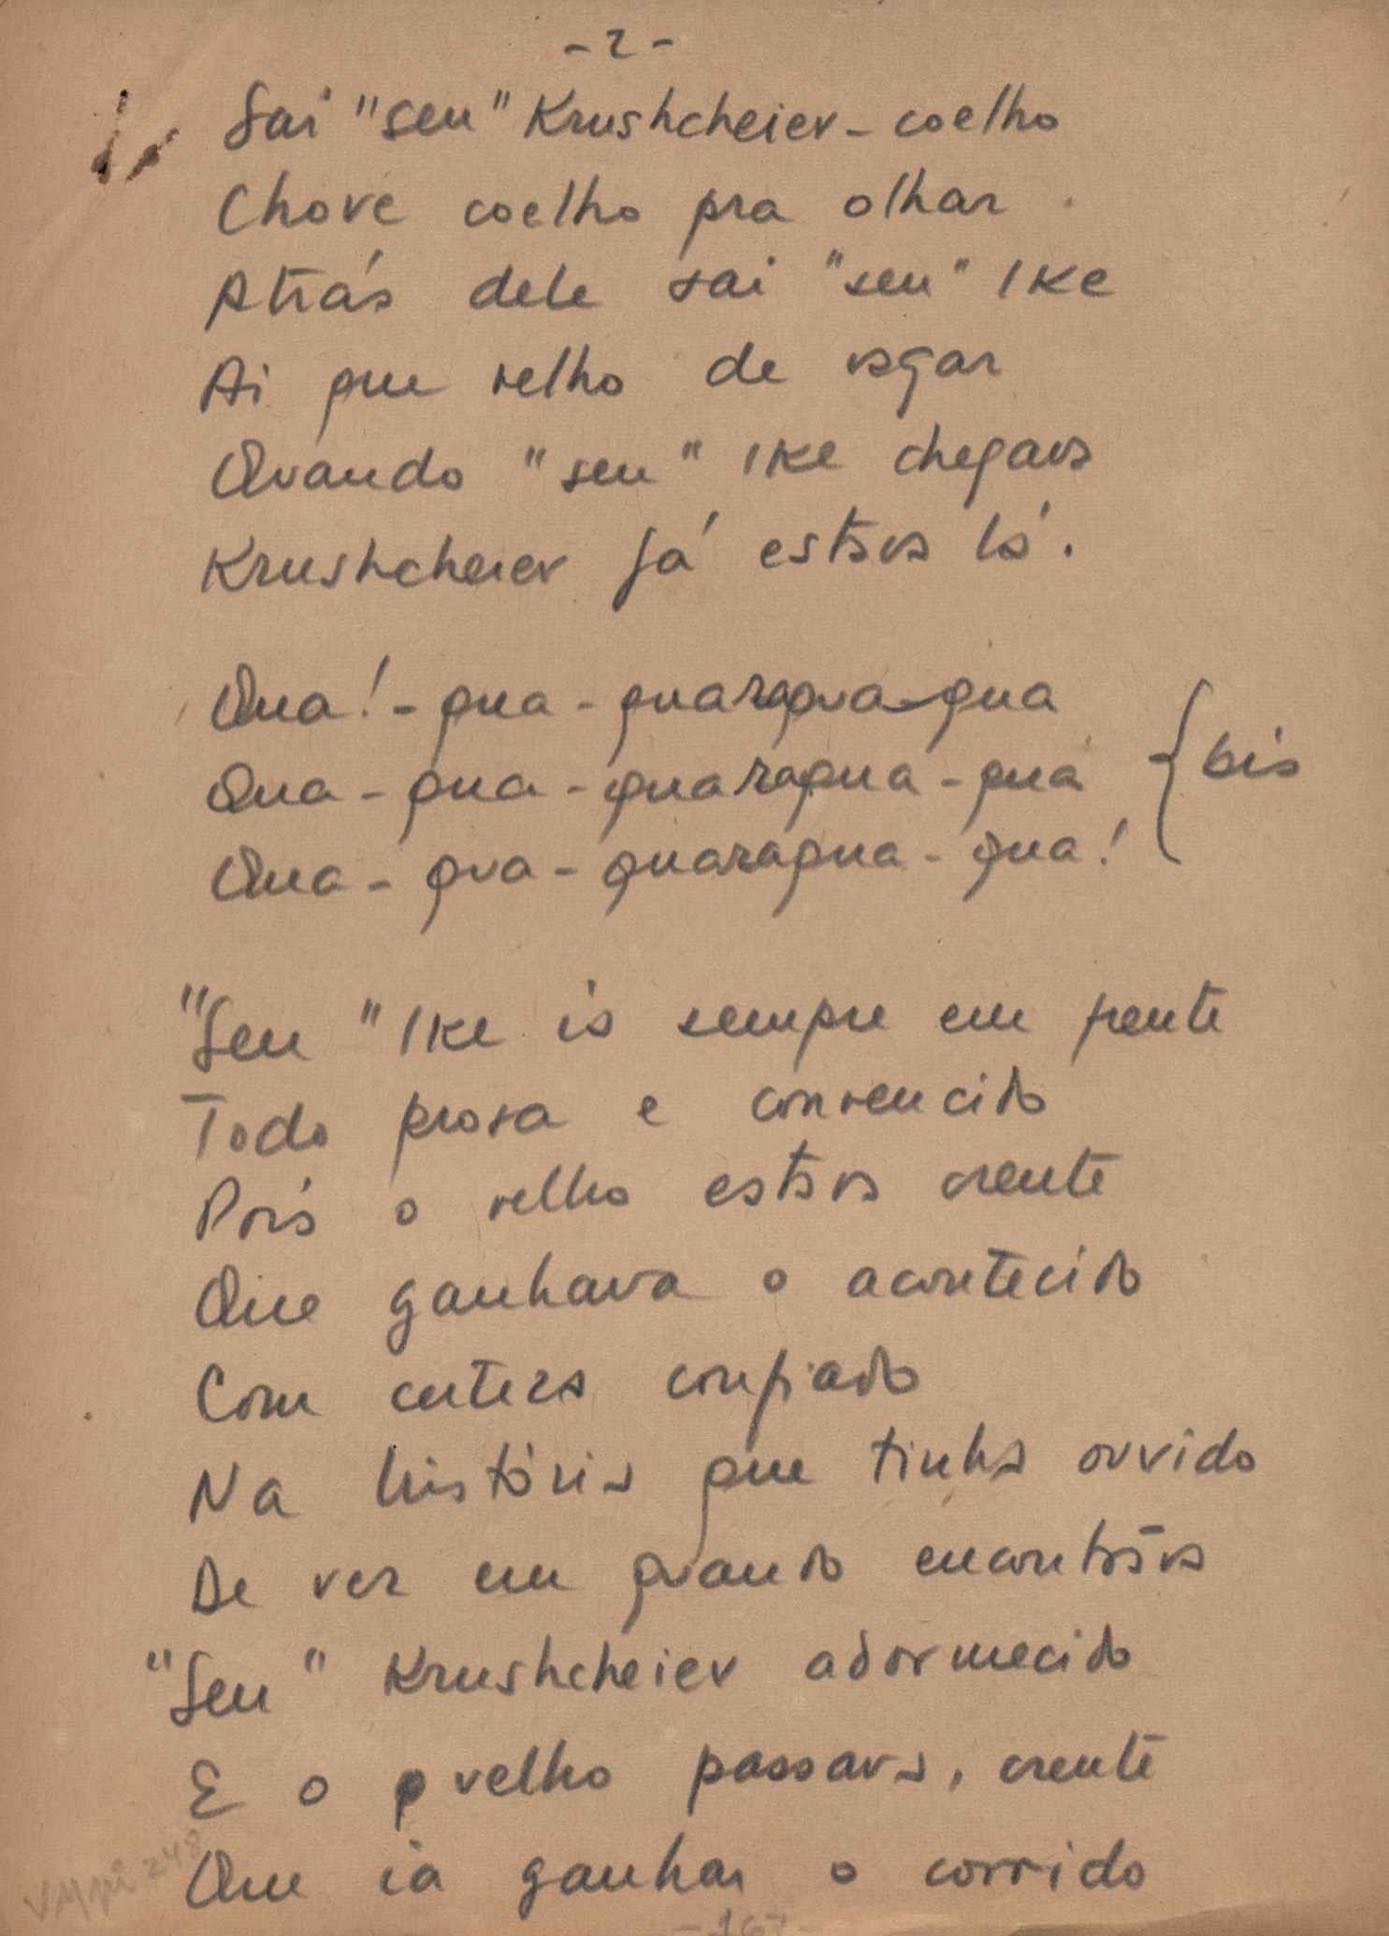 - 2 -
Sai "seu" Krushcheiev - coelho
Chove coelho pra olhar
Atrás dele sai "seu" Ike
Ai que velho de vagar
Quando "seu" Ike chegava
Krushcheiev já estava lá.
Qua! - qua - quaraqua - qua
Qua - qua - quaraqua - qua
Qua - qua - quaraqua - qua! { bis
"Seu" Ike ia sempre em frente
Todo prosa e convencido
Pois o velho estava crente
Que ganhava o acontecido
Com certeza confiado
Na história que tinha ouvido
De vez em quando encontrava
"Seu" Krushcheiev adormecido
E o velho passava, crente
Que ia ganhar o corrido
- 167 -